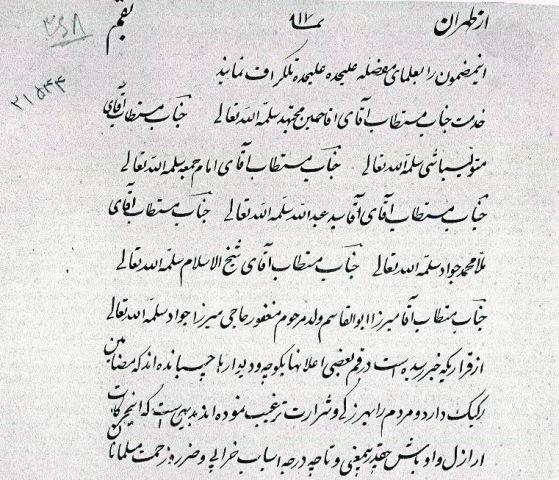 از طهران نمره ۹۱۲ بقم
۳۶۸
این مضمون را بعلمای مفصله علیحده علیحده تلگراف نمایند
۲۱۵۴۴
خدمت جناب مستطاب آقای آقا حسین مجتهد سلمه الله تعالی جناب مستطاب آقای
متولیباشی سلمه الله تعالی جناب مستطاب آقای امام جمعه سلمه الله تعالی
جناب مستطاب آقای آقا سید عبدالله سلمه الله تعالی جناب مستطاب آقای
ملا محمد جواد سلمه الله تعالی جناب مستطاب آقای شیخ الاسلام سلمه الله تعالی
جناب مستطاب آقا میرزا ابوالقاسم ولد مرحوم مغفور حاجی میرزا جواد سلمه الله تعالی
از قراریکه خبر رسیده است در قم بعضی اعلانها بکوچه و دیوارها چسبانده اند که مضامین
رکیک دارد و مردم را بهرزگی و شرارت ترغیب نموده اند بدیهی است که این حرکات
ارازل و اوباش چقدر بیمعنی و تا چه درجه اسباب خرابی و ضرر و زحمت مسلمانان